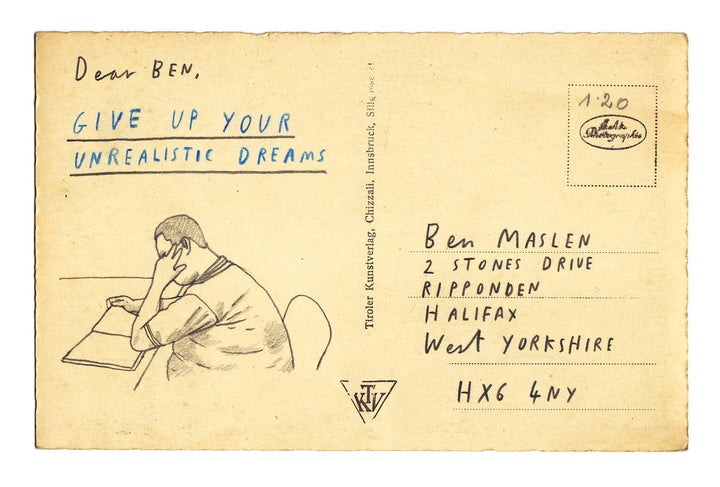 Dear BEN,
GIVE UP YOUR
UNREALISTIC DREAMS
Tiroler Kunstverlag, Chizzali, Innsbruck,
1·20
Echte
Photographie
Ben MASLEN
2 STONES DRIVE
RIPPONDEN
HALIFAX
West YORKSHIRE
HX6 4NY
KTV